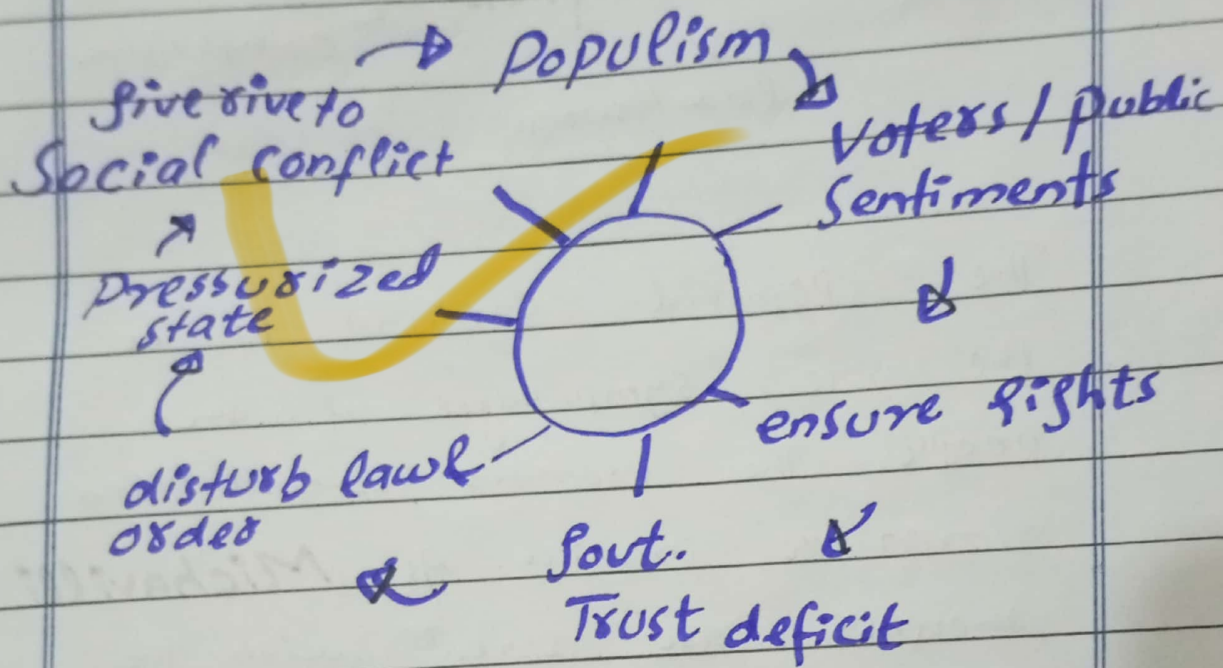 Populism
Voters / public
Sentiments
ensure rights
Govt.
Trust deficit
disturb law &
order
Pressurized
state
give rive to
Social conflict